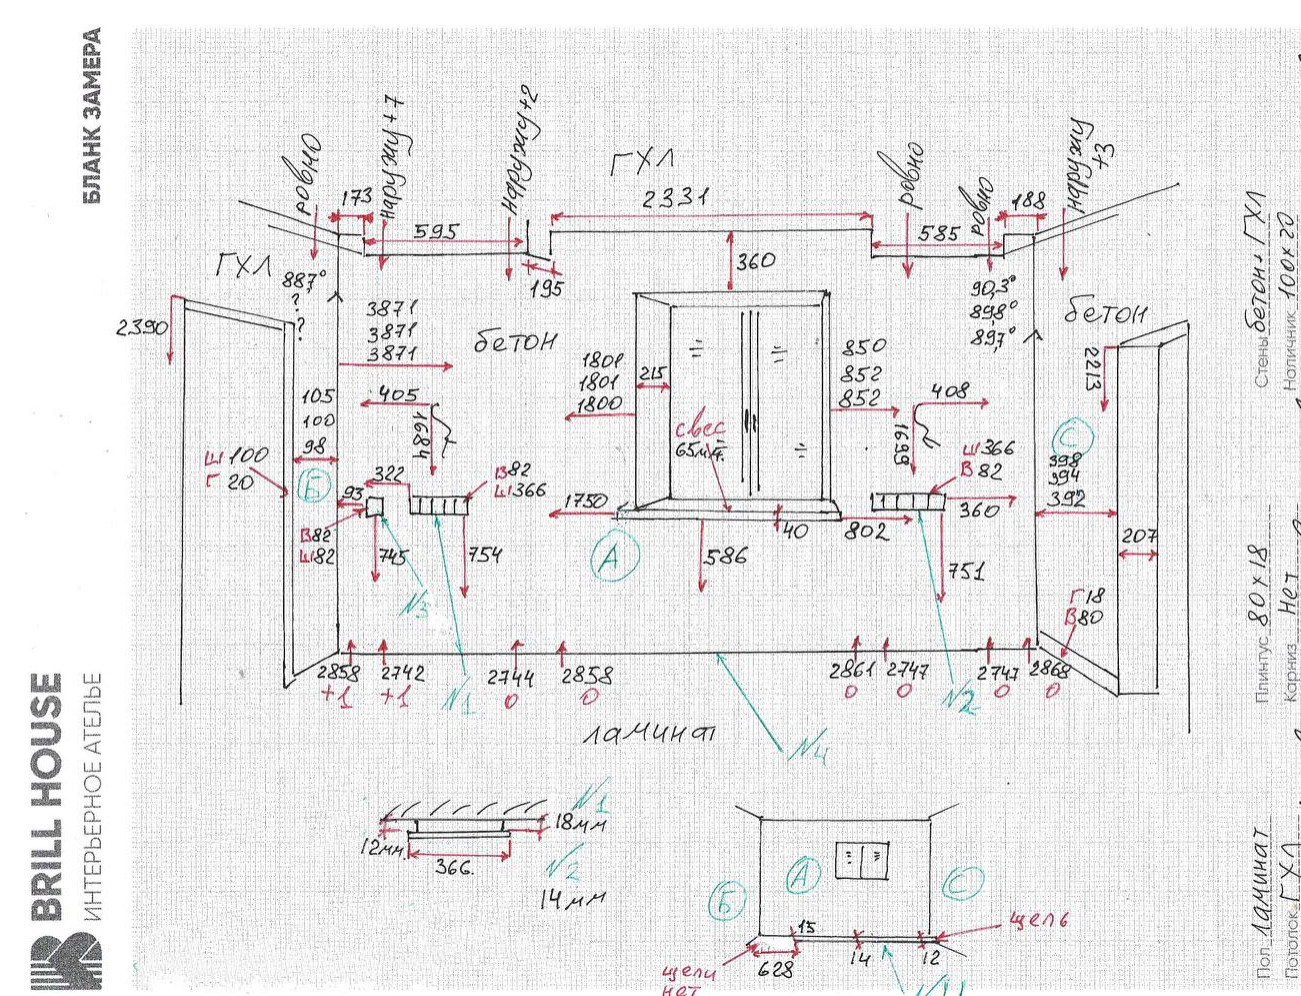 БЛАНК ЗАМЕРА
BRILL HOUSE
ИНТЕРЬЕРНОЕ АТЕЛЬЕ
ровно
173
наружу +7
595
наружу +2
195
ГХЛ
2331
360
ровно
585
ровно
188
наружу
+3
ГХЛ
887°
?
?
2390
3871
3871
3871
бетон
90,3°
89,8°
89,7°
бетон
2213
1801
1801
1800
215
850
852
852
105
100
98
405
1684
408
1699
свес
65мм.
Ш 100
Г 20
Б
93
322
В82
Ш366
1750
40
802
Ш366
В 82
360
С
398
394
392
207
В82
Ш82
745
754
А
586
751
Г18
В80
N3
2858
+1
2742
+1
N1
2744
0
2858
0
2861
0
2747
0
N2
2747
0
2868
0
ламинат
N4
N1
18мм
12мм.
366.
N2
14мм
А
Б
С
15
щель
628
14
12
щели
нет
Стены бетон+ ГХЛ
Наличник 100х20
Плинтус 80х18
Карниз Нет
Пол ламинат
Потолок ГХЛ